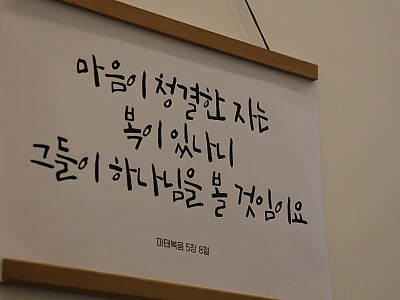 마음이 청결한 자는
복이 있나니
그들이 하나님을 볼 것임이요
마태복음 5장 8절